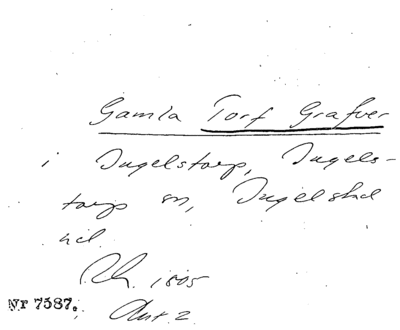 Gamla Torf Grafver
i Ingelstorp, Ingels-
torp sn, Ingelstad
hd.
1805
Nr 7587.
Akt 2